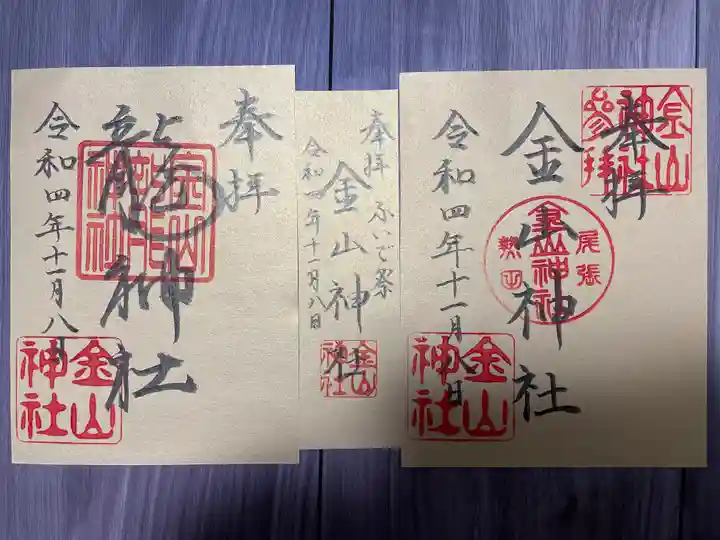 奉拝
龍神社
令和四年十一月八日
金山神社
奉拝 ふいご祭
金山神社
令和四年十一月八日
金山神社
奉拝
金山神社参拝
金山神社
尾張
熱田
金山神社
令和四年十一月八日
金山神社